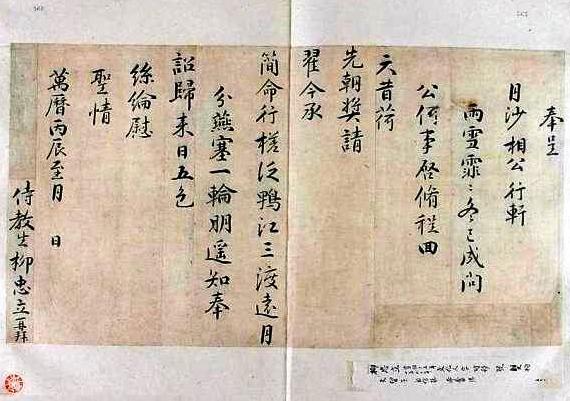 奉呈
月沙相公行軒
雨雪霏〻冬已成問
公何事啓脩程回
天昔荷
先朝奬請
翟今承
簡命行槎泛鴨江三渡遠月
分燕塞一輪明遙知奉
詔歸来日五色
絲綸慰
聖情
萬曆丙辰至月 日
侍教生柳忠立再拜
柳忠立